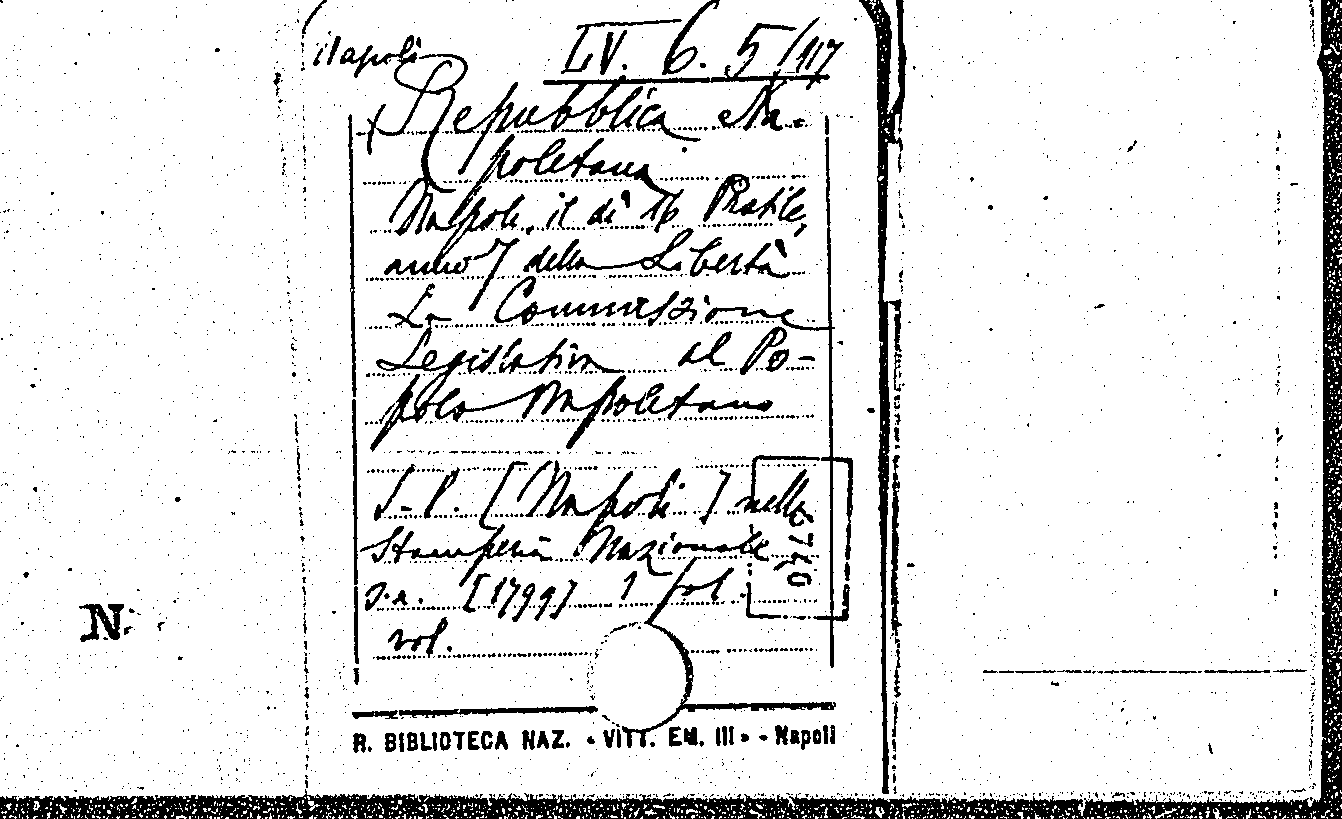 Napoli LV. 6. 5/117
Repubblica Na-
poletana
Napoli, il dì 16 Pratile,
anno 7 della Libertà
La Commissione
Legislativa al Po-
polo Napoletano
S. l. [Napoli] nella
Stamperia Nazionale,
s.a. [1799] 1 fol.
vol.
0740
N.
R. BIBLIOTECA NAZ. «VITT. EM. III» - Napoli